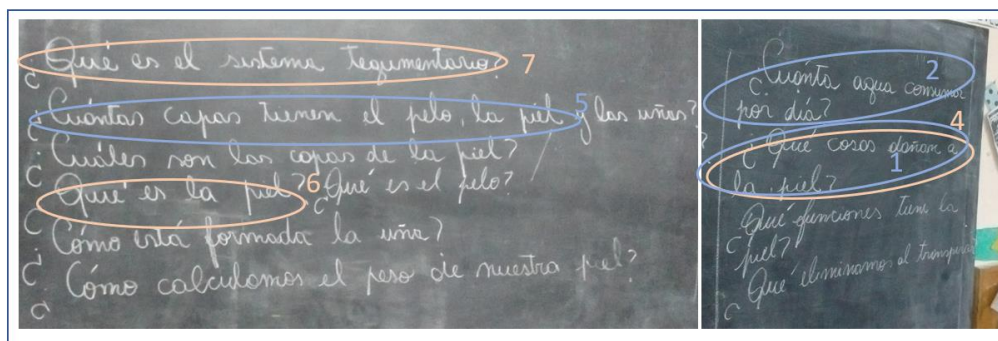 ¿Qué es el sistema tegumentario? 7
¿Cuántas capas tienen el pelo, la piel 5 y las uñas?
¿Cuáles son las capas de la piel?
¿Qué es la piel? 6 ¿Qué es el pelo?
¿Cómo está formada la uña?
¿Cómo calculamos el peso de nuestra piel?
¿Cuánta agua consumor 2
por día?
4
¿Qué cosas dañan a
la piel? 1
¿Qué funciones tiene la
piel?
¿Qué eliminamos al